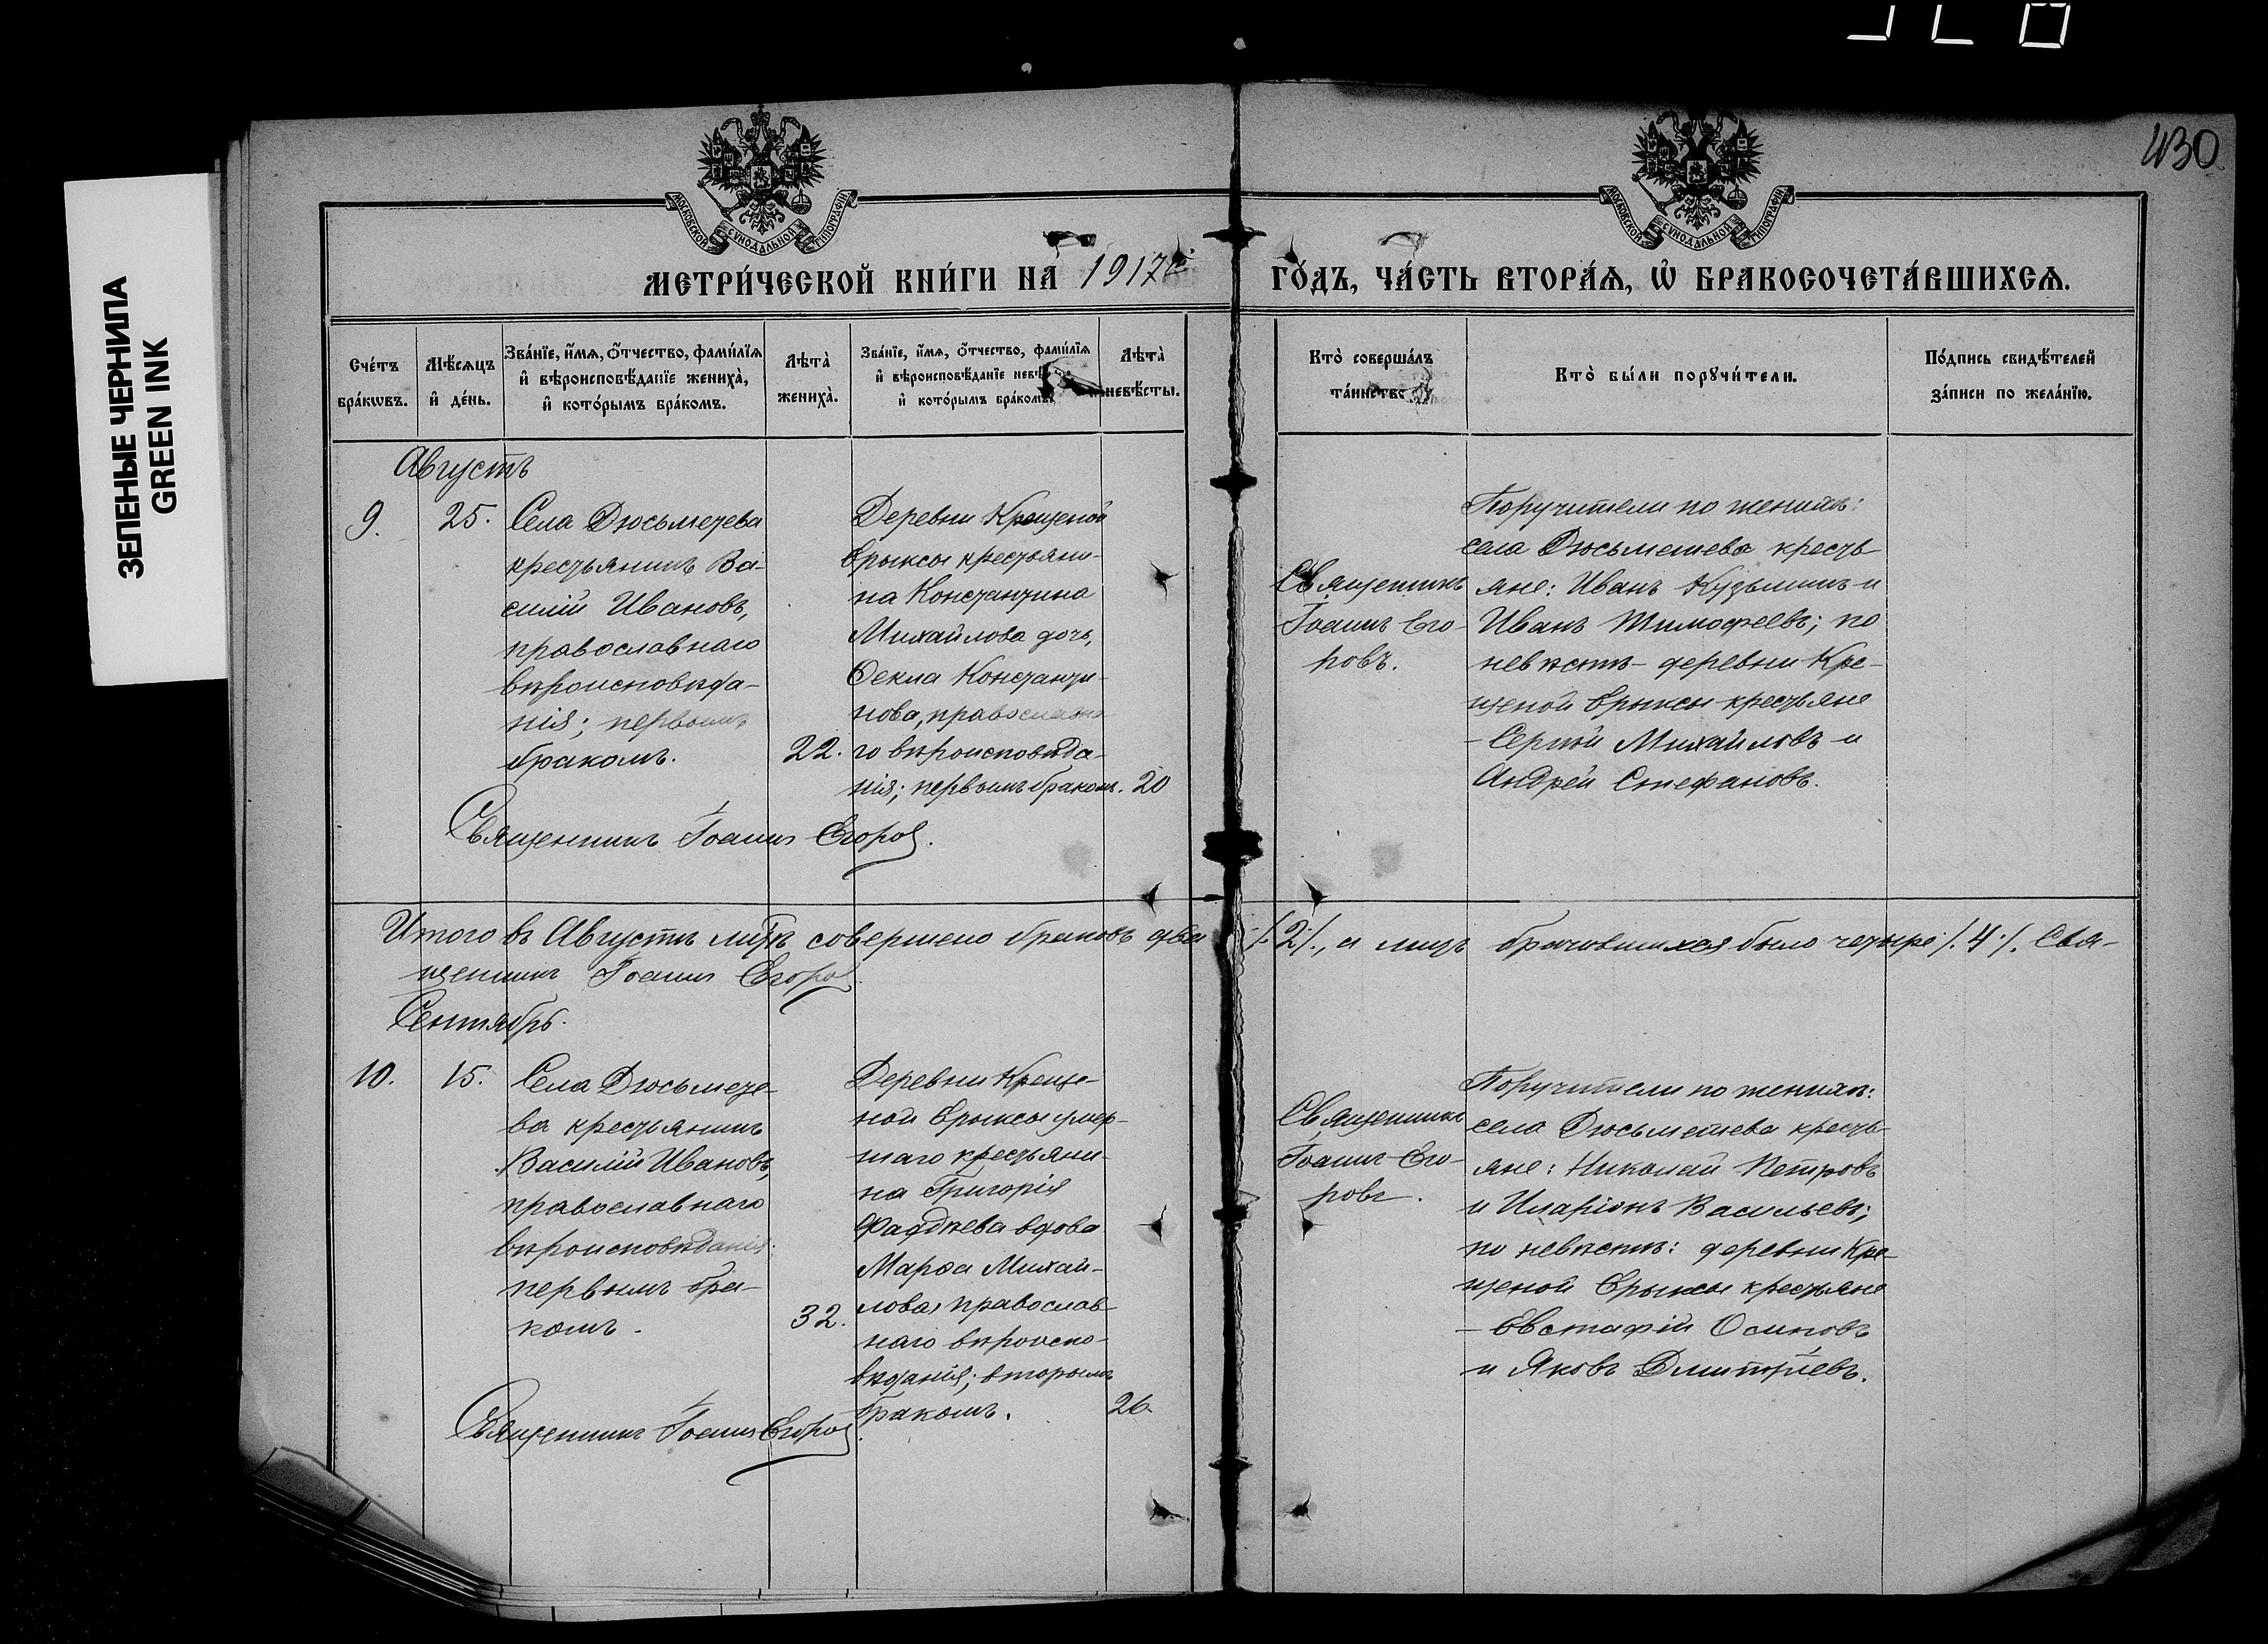 430
МОСКОВСКОЙ СѴНОДАЛЬНОЙ ТИПОГРАФІИ
МОСКОВСКОЙ СѴНОДАЛЬНОЙ ТИПОГРАФІИ
ЗЕЛЕНЫЕ ЧЕРНИЛА
GREEN INK
МЕТРИ́ЧЕСКОЙ КНИ́ГИ НА 1917й ГО́ДЪ, ЧА́СТЬ ВТОРА́Ѧ, Ѡ҆ БРАКОСОЧЕТА́ВШИХСѦ.
Сче́тъ
бра́кѡвъ.
Мѣ́сѧцъ
и҆ де́нь.
Зва́нїе, и҆́мѧ, ѻ҆́тчество, фами́лїѧ
и҆ вѣроисповѣ́данїе жениха̀,
и҆ кото́рымъ бра́комъ.
Лѣта̀
жениха̀.
Зва́нїе, и҆́мѧ, ѻ҆́тчество, фами́лїѧ
и҆ вѣроисповѣ́данїе
и҆ кото́рымъ бра́комъ.
Лѣта̀
невѣ́сты.
Кто̀ соверша́лъ
та́инство
Кто̀ бы́ли порꙋчи́тели.
По́дпись свидѣ́телей
за́писи по жела́нїю.
Августъ
9.
25.
Села Дюсьметева
крестьянинъ Ва-
силій Ивановъ,
православнаго
вѣроисповѣда-
нія; первымъ
бракомъ.
22.
Деревни Крещеной
Ерыксы крестьяни-
на Константина
Михайлова дочь,
Ѳекла Константи-
нова, православна-
го вѣроисповѣда-
нія; первымъ бракомъ.
20
Священникъ
Іоаннъ Его-
ровъ.
Поручители по женихѣ:
села Дюсьметева кресть-
яне: Иванъ Кузьминъ и
Иванъ Тимофеевъ; по
невѣстѣ – деревни Кре-
щеной Ерыксы крестьяне
– Сергѣй Михайловъ и
Андрей Стефановъ.
Священникъ Іоаннъ Егоровъ.
Итого въ Августѣ м-цѣ совершено браковъ два /.2/., а лицъ брачившихся было четыре /.4./. Свя-
щенникъ Іоаннъ Егоровъ.
Сентябрь.
10.
15.
Села Дюсьмете-
ва крестьянинъ
Василій Ивановъ,
православнаго
вѣроисповѣданія:
первымъ бра-
комъ.
32.
Деревни Креще-
ной Ерыксы умер-
шаго крестьяни-
на Григорія
Фаддѣева вдова
Марѳа Михай-
лова, православ-
наго вѣроиспо-
вѣданія; вторымъ
бракомъ.
26.
Священникъ
Іоаннъ Его-
ровъ.
Поручители по женихѣ:
села Дюсьметева кресть-
яне: Николай Петровъ
и Иларіонъ Васильевъ;
по невѣстѣ: деревни Кре-
щеной Ерыксы крестьяне
– Евстафій Осиповъ
и Яковъ Дмитріевъ.
Священникъ Іоаннъ Егоровъ.